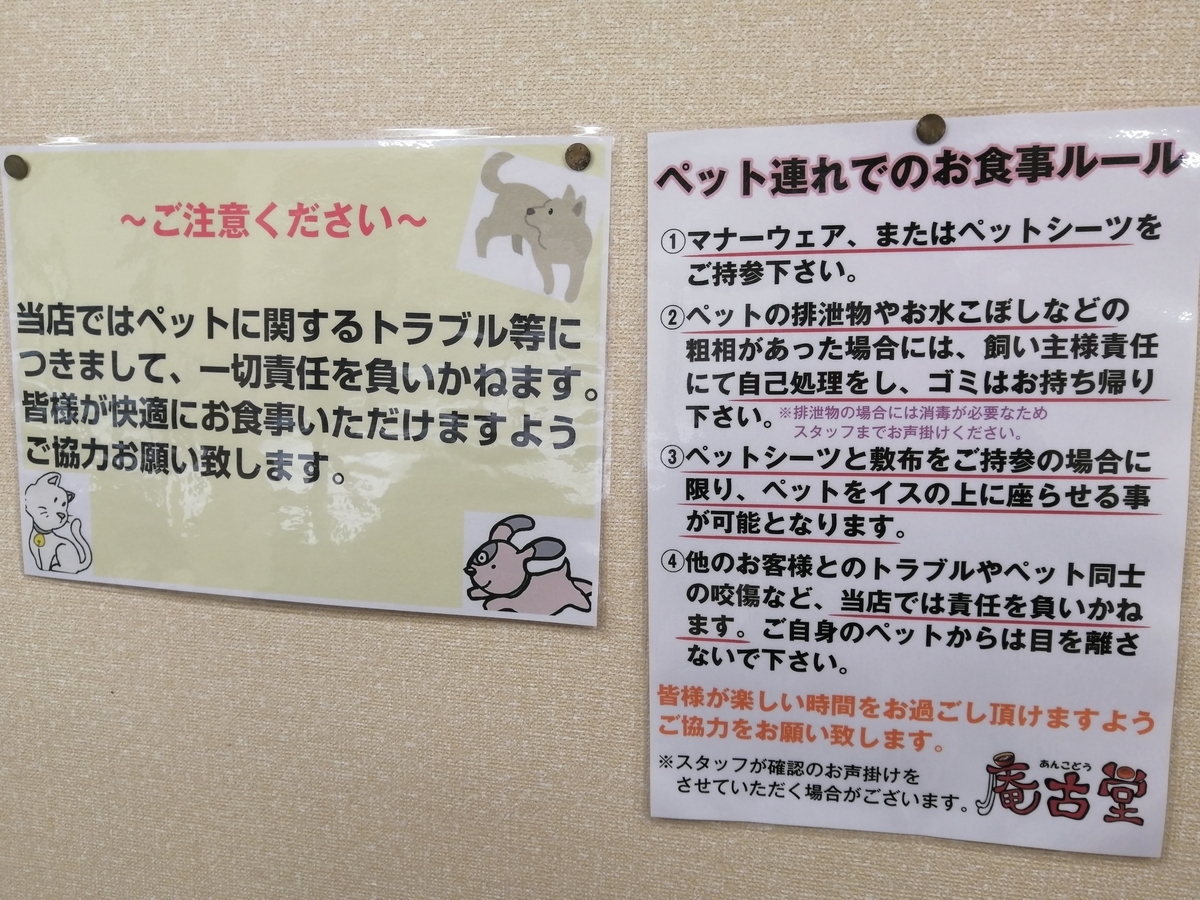 ~ご注意ください~
当店ではペットに関するトラブル等に
つきまして、一切責任を負いかねます。
皆様が快適にお食事いただけますよう
ご協力お願い致します。
ペット連れでのお食事ルール
①マナーウェア、またはペットシーツを
ご持参下さい。
②ペットの排泄物やお水こぼしなどの
粗相があった場合には、飼い主様責任
にて自己処理をし、ゴミはお持ち帰り
下さい。
※排泄物の場合には消毒が必要なため
スタッフまでお声掛けください。
③ペットシーツと敷布をご持参の場合に
限り、ペットをイスの上に座らせる事
が可能となります。
④他のお客様とのトラブルやペット同士
の咬傷など、当店では責任を負いかね
ます。ご自身のペットからは目を離さ
ないで下さい。
皆様が楽しい時間をお過ごし頂けますよう
ご協力をお願い致します。
※スタッフが確認のお声掛けを
させていただく場合がございます。
あんこどう
庵古堂